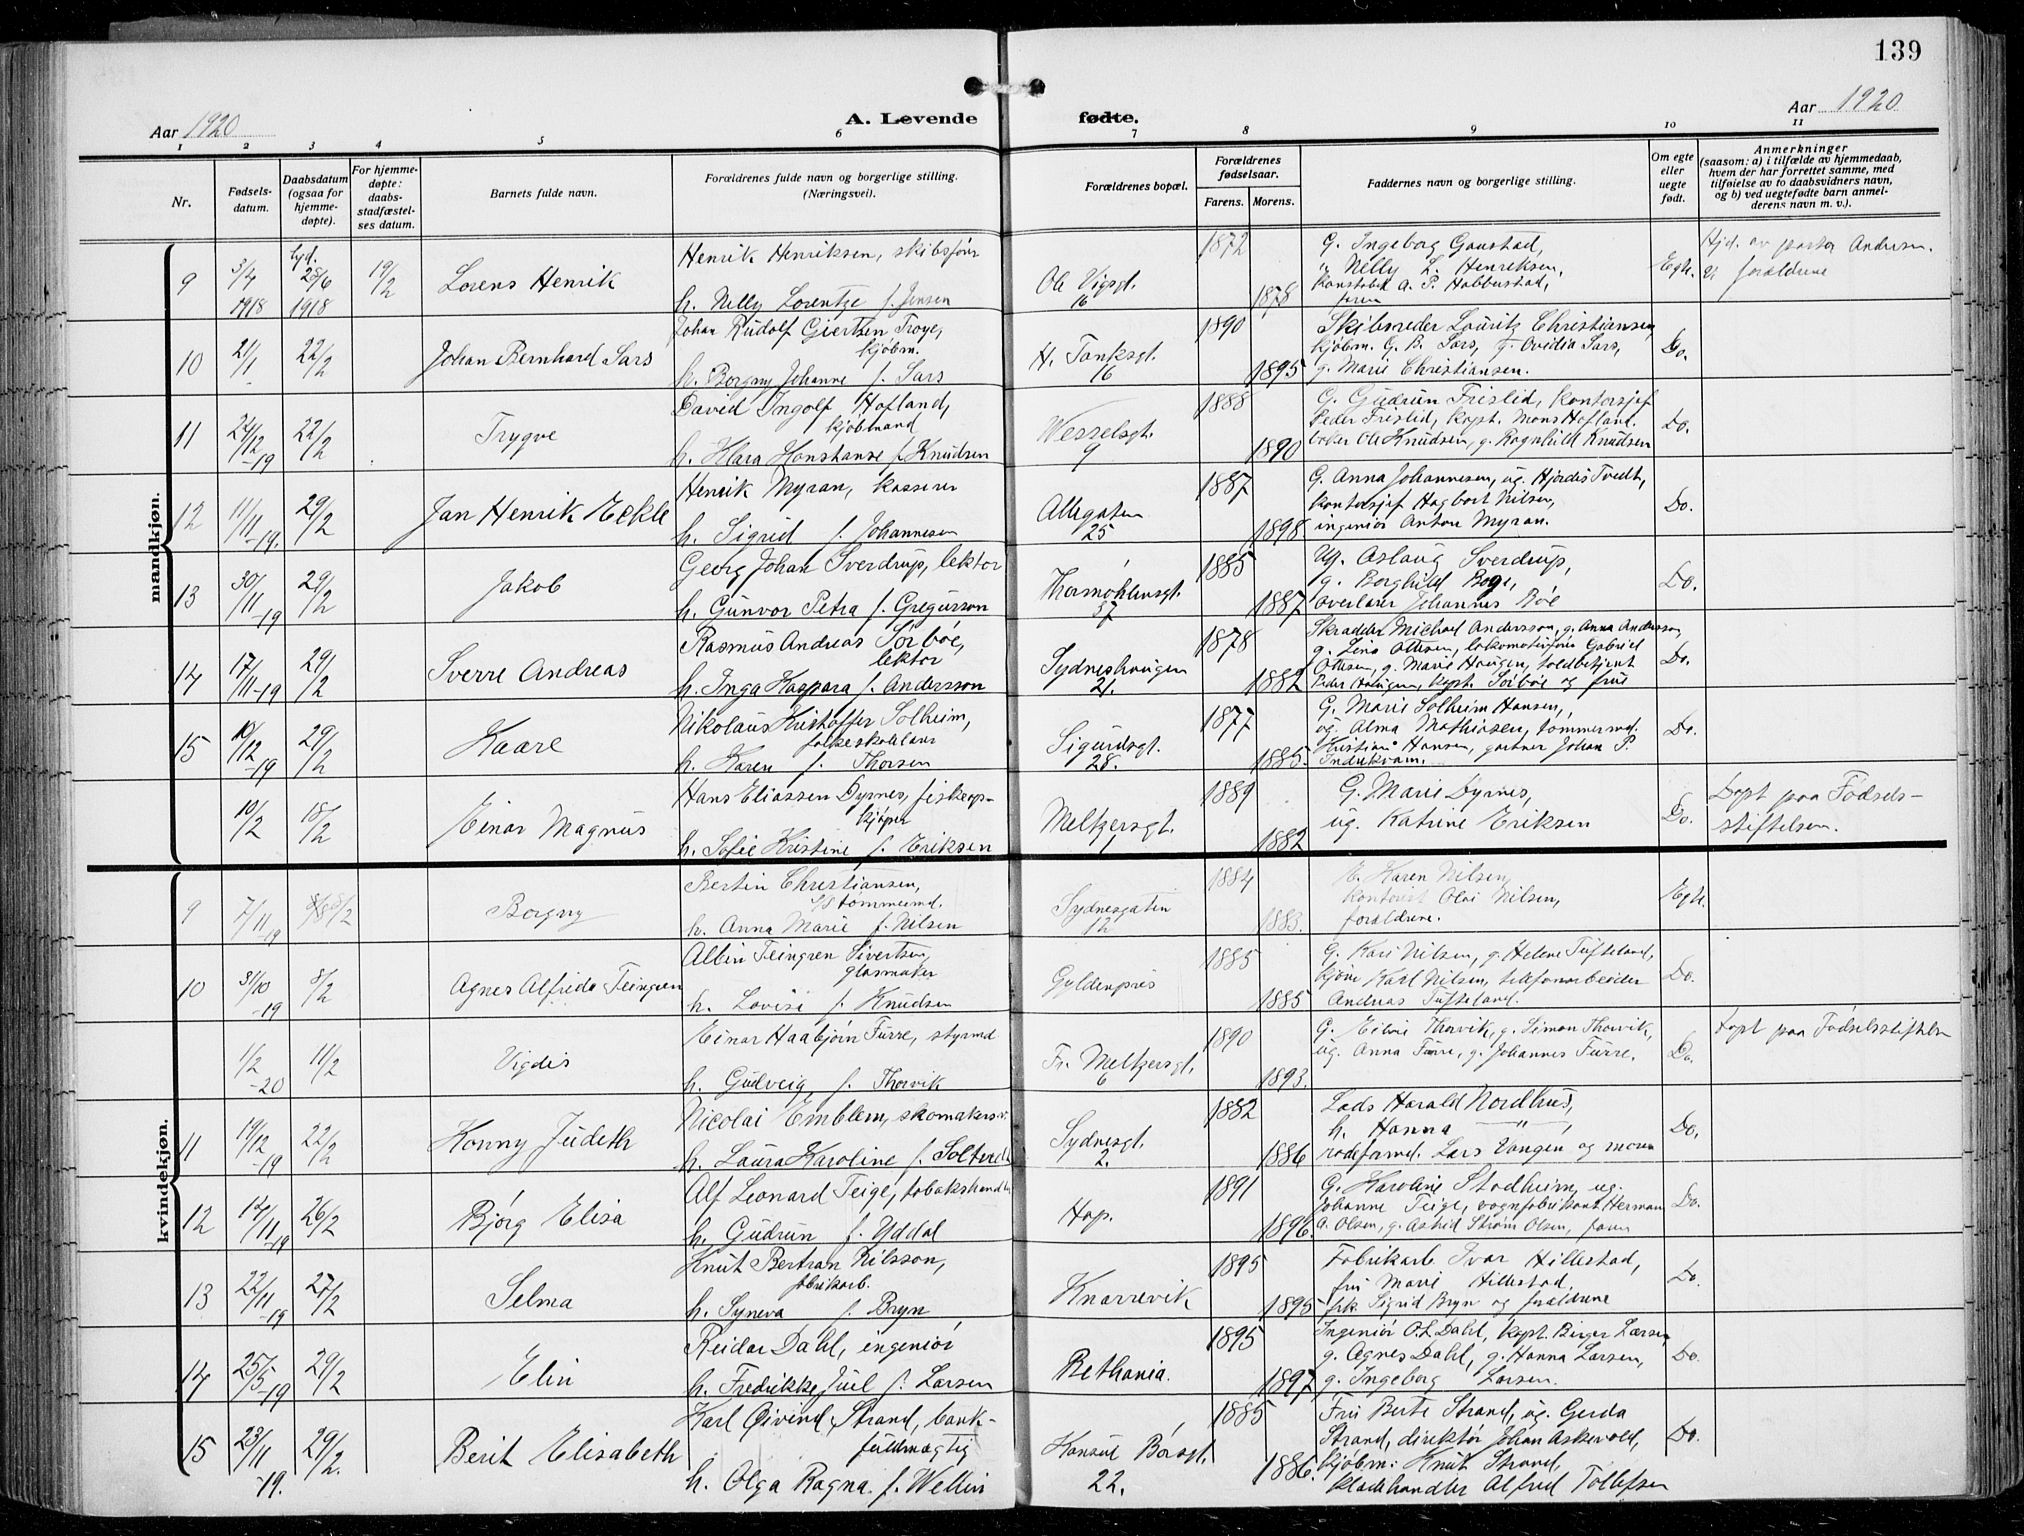 139
Aar 1920
A. Levende fødte.
Aar 1920
1 2 3 4 5 6 7 8 9 10 11
Nr.
Fødsels-
datum.
Daabsdatum
(ogsaa for
hjemme-
døpte).
For hjemme-
døpte:
daabs-
stadfæstel-
ses datum.
Barnets fulde navn.
Forældrenes fulde navn og borgerlige stilling.
(Næringsvei).
Forældrenes bopæl.
Forældrenes
fødselsaar.
Farens. Morens.
Faddernes navn og borgerlige stilling.
Om egte
eller
uegte
født.
Anmerkninger
(saasom: a) i tilfælde av hjemmedaab,
hvem der har forrettet samme, med
tilføielse av to daabsvidners navn,
og b) ved uegtefødte barn anmel-
derens navn m. v.).
mandkjøn.
9 3/4 1918 28/6 1918 19/2 Lorens Henrik
Henrik Henriksen, skibsfører
h. Nelly Lorentze f. Jensen
Ole Vigsgt. 16
1872 1878
G. Ingeborg Gaustad,
Nelly L. Henriksen,
konstabel A. P. Hobberstad,
faren
Egte.
Hjd. av pastor Andersen.
forældrene
10 21/1 22/2 Johan Bernhard Sars
Johan Rudolf Giertsen Troye,
kjøbm.
h. Borgny Johanne f. Sars
H. Tanksgt. 16
1890 1895
Skibsreder Lauritz Christiansen,
kjøbm. G. B. Sars, f. Ovidia Sars,
g. Marie Christiansen.
Do.
11 24/12-19 22/2 Trygve
David Ingolf Hofland,
kjøbmand
h. Klara Konstanse f. Knudsen
Wesselsgt. 9
1888 1890
G. Gudrun Frislid, kontorsjef
Peder Frislid, kapt. Mons Hofland.
Ole Knudsen, g. Ragnhild Knudsen
Do.
12 11/11-19. 29/2 Jan Henrik Eckle
Henrik Myran, kasserer
h. Sigrid f. Johannesen
Allegaten 25
1887 1898
G. Anna Johannesen, ug. Hjørdis Tvedt,
kontorsjef Hagbart Nilsen,
ingeniør Anton Myran.
Do.
13 30/11-19 29/2 Jakob
Georg Johan Sverdrup, lektor
h. Gunvor Petra f. Gregusson
Thormøhlensgt. 57
1885 1887
Ug. Aslaug Sverdrup,
g. Borghild Bøge,
Overlærer Johannes Bøe
Do.
14 17/11-19 29/2 Sverre Andreas
Rasmus Andreas Sørbøe,
lektor
h. Inga Kaspara f. Andersson
Sydneshaugen 21.
1878 1882
Skrædder Michael Andersson, g. Anna Andersson,
g. Lina Ottesen, lokomotivfører Gabriel
Ottesen, g. Marie Haugen, toldbetjent
Peder Haugen, kapt. Sørbøe og frue
Do.
15 10/12-19 29/2 Kaare
Nikolaus Kristoffer Solheim,
folkeskolelærer
h. Karen f. Thorsen
Sigurdsgt. 28.
1877 1885.
G. Marie Solheim Hansen,
ug. Alma Mathiasen, tømmermd.
Kristian Hansen, gartner Johan P.
Indrekvam.
Do.
10/2 18/2 Einar Magnus
Hans Eliassen Dyrnes, fiskeop-
kjøper
h. Sofie Kristine f. Eriksen
Meltzersgt. 1
1889 1882
G. Marie Dyrnes,
ug. Katrine Eriksen
Do.
Døpt paa Fødsels-
stiftelsen.
kvindekjøn.
9 7/11-19 8/2 Borgny
Bertin Christiansen,
tømmermd.
h. Anna Marie f. Nilsen
Sydnesgaten 12
1884 1883.
E. Karen Nilsen,
kontorist Olai Nilsen,
forældrene.
Egte.
10 31/10-19 8/2 Agnes Alfrida Teingren
Albin Teingren Sivertsen,
glasmaker
h. Lovise f. Knudsen
Gyldenpris
1885 1885
G. Kari Nilsen, g. Helene Tufteland,
Karl Nilsen, telefonarbeider
Andreas Tufteland.
Do.
1/2-20 11/2 Vigdis
Einar Haabjørn Furre, styrmd
h. Gudveig f. Thorvik
Fr. Meltzersgt. 6
1890 1893.
G. Eilvi Thorvik, g. Simon Thorvik,
ug. Anna Furre, g. Johannes Furre.
Do.
Døpt paa Fødselsstiftelse
11 19/12-19 22/2 Konny Judith
Nicolai Emblem, skomakersv.
h. Laura Karoline f. Soltvedt
Sydnesgt. 2.
1882 1886
Lods Harald Nordhus,
h. Hanna — " —,
rodeformd. Lars Vangen og moren
Do.
12 14/11-19 26/2 Bjørg Elisa
Alf Leonard Teige, tobakshandler
h. Gudrun f. Yddal
Hop.
1891 1896
G. Karoline Stadheim, ug.
Johanne Teige, vognfabrikant Herman
A. Olsen, g. Astrid Strøm Olsen, faren
Do.
13 22/11-19 27/2 Selma
Knut Bertran Nilsson,
fabrikarb.
h. Syneva f. Bryn
Knarrevik
1895 1895
Fabrikarb. Ivar Hillestad,
fru Marie Hillestad,
frk. Sigrid Bryn og forældrene
Do.
14 25/5-19 29/2 Elin
Reidar Dahl, ingeniør
h. Fredrikke Juel f. Larsen
Bethania.
1895 1897
Ingeniør O. L. Dahl, kapt. Birger Larsen,
g. Agnes Dahl, g. Hanna Larsen,
g. Ingeborg Larsen.
Do.
15 23/11-19. 29/2. Berit Elisabeth
Karl Øivind Strand, bank-
fuldmægtig
h. Olga Ragna f. Wellin
Konsul Børsgt. 22.
1885 1886.
Fru Berte Strand, ug. Gerda
Strand, direktør Johan Askevold,
kjøbm: Knut Strand,
kladehandler Alfred Tollefsen
Do.